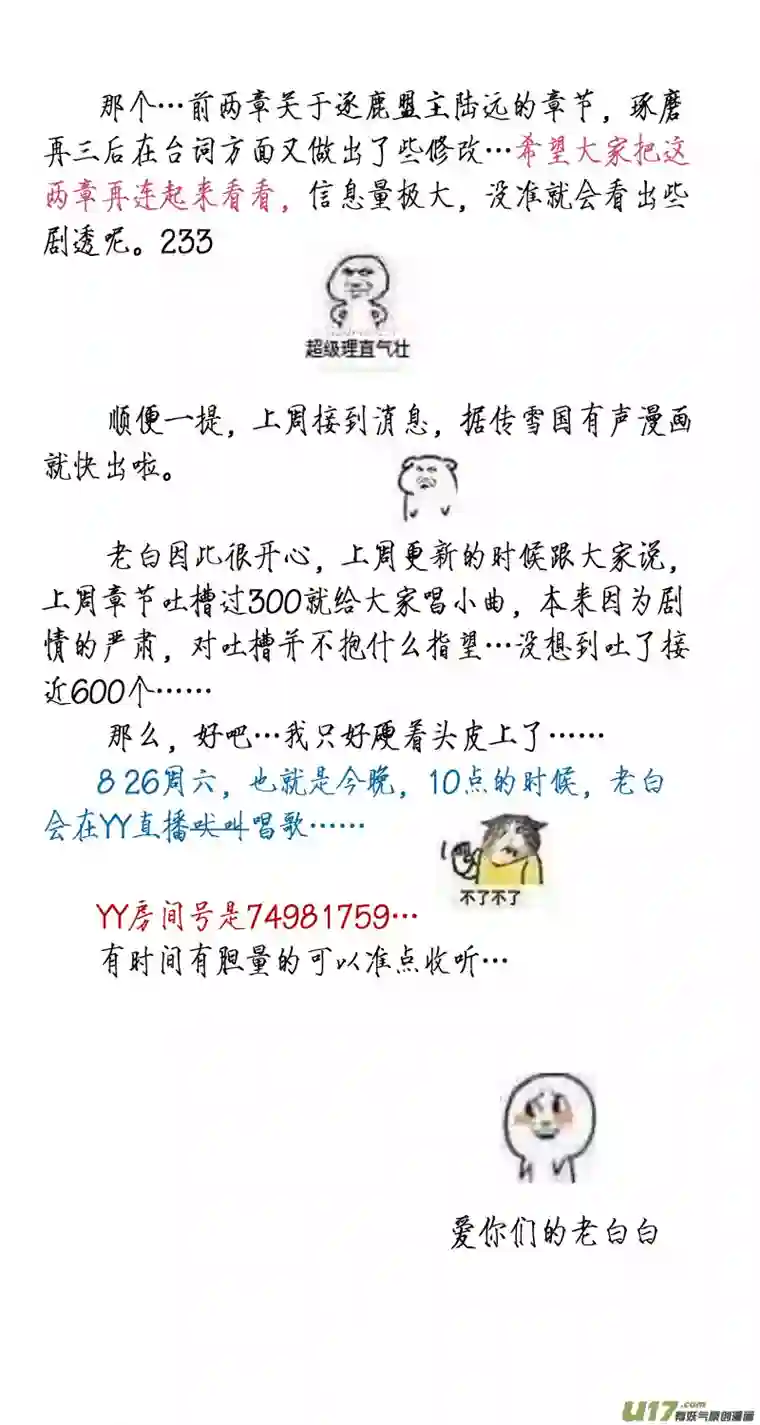 那个…前两章关于逐鹿盟主陆远的章节，琢磨
再三后在台词方面又做出了些修改…希望大家把这
两章再连起来看看，信息量极大，没准就会看出些
剧透呢。233
超级理直气壮
顺便一提，上周接到消息，据传雪国有声漫画
就快出啦。
老白因此很开心，上周更新的时候跟大家说，
上周章节吐槽过300就给大家唱小曲，本来因为剧
情的严肃，对吐槽并不抱什么指望…没想到吐了接
近600个……
那么，好吧…我只好硬着头皮上了……
8 26周六，也就是今晚，10点的时候，老白
会在YY直播吠叫唱歌……
不了不了
YY房间号是74981759…
有时间有胆量的可以准点收听…
爱你们的老白白
U17.com
有妖气原创漫画